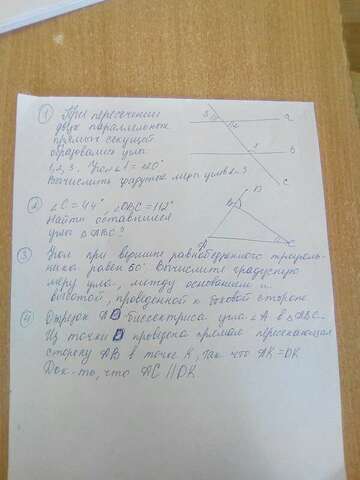 ① При пересечении
двух параллельных
прямых секущей
образовались углы
1, 2, 3. Угол 1 = 120°
Вычислить градусные меры углов 2, 3
3
2
a
1
b
c
② ∠C = 44°, ∠DBC = 112°
Найти оставшиеся
углы △ABC?
D
B
A
C
③ Угол при вершине равнобедренного треуголь-
ника равен 50° Вычислите градусную
меру угла, между основанием и
высотой, проведенной к боковой стороне
④ Отрезок AD биссектриса угла ∠A в △ABC.
Из точки D проведена прямая пересекающая
сторону AB в точке K, так что AK = DK
Док-ть, что AC || DK